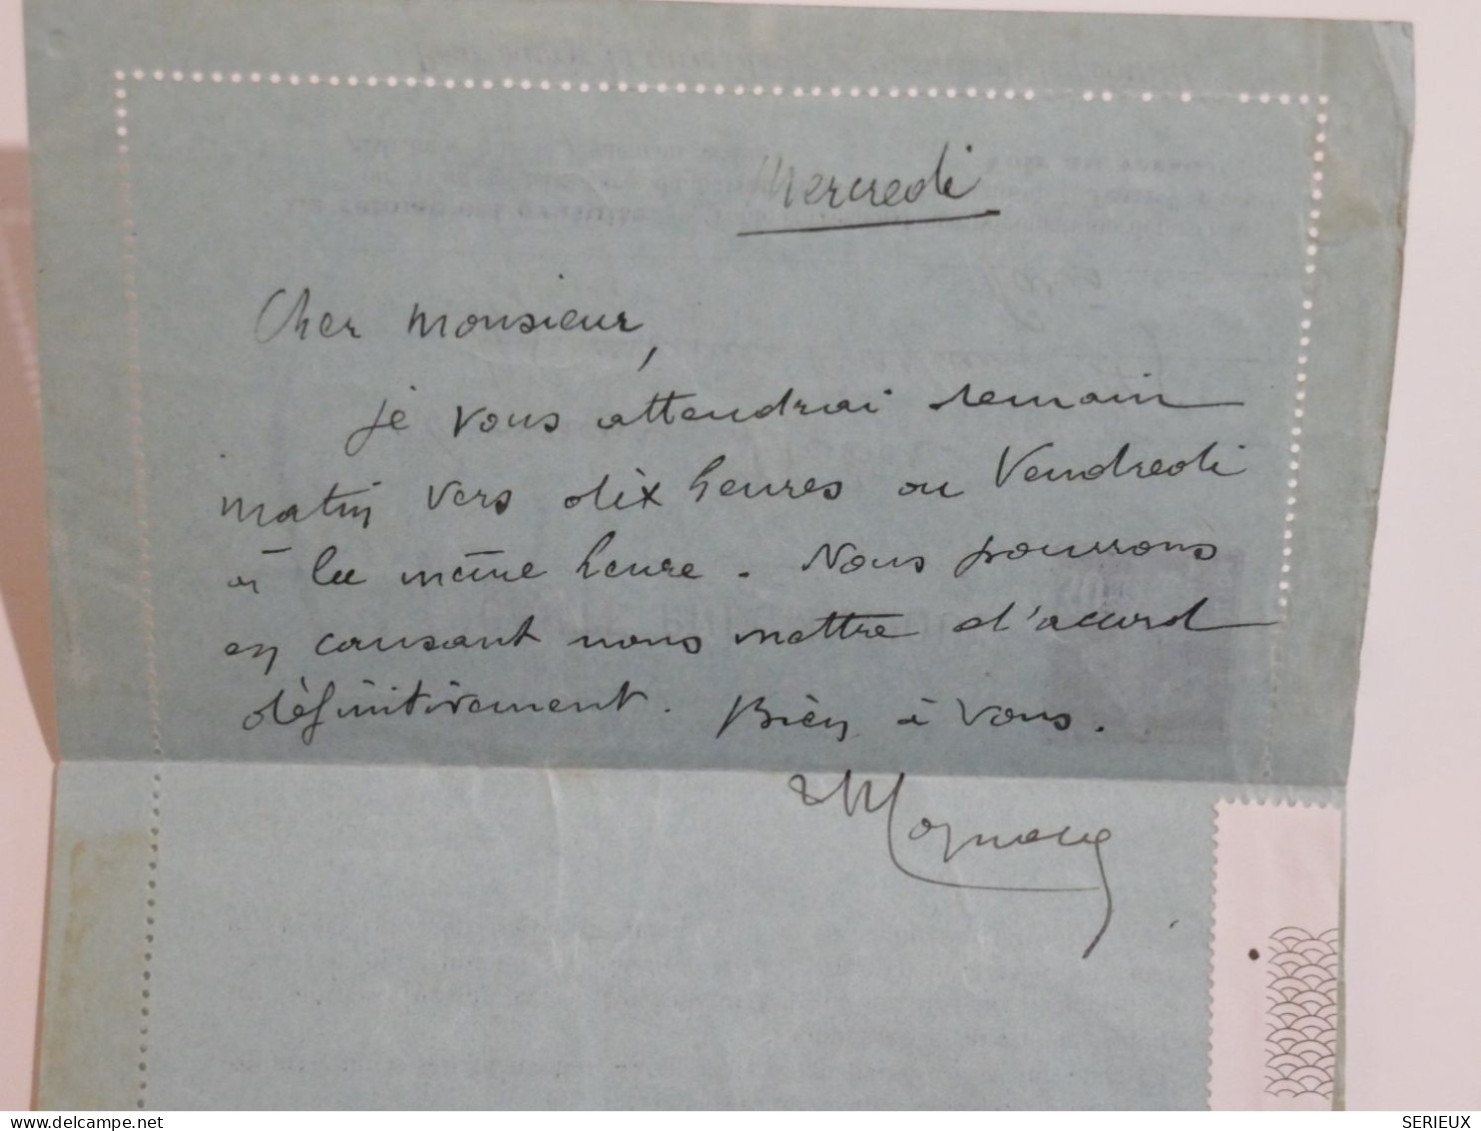 Mercredi
Cher Monsieur,
je vous attendrai demain
matin vers dix heures ou Vendredi
à la même heure. Nous pourrons
en causant nous mettre d'accord
définitivement. Bien à vous.
SERIEUX